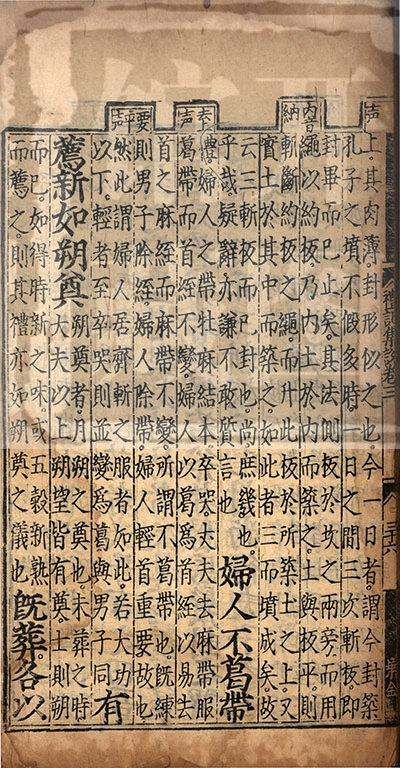 禮記集說卷二
三十六
声
上其肉薄封形似之也今一日者謂今封築
孔子之墳不假多時一日之間三次斬板即
封畢而已止矣其法側板於坎之兩旁而用
內音
納
繩以約板乃內土於內而築之土與板平則
斬斷約板之繩而升此板於所築土之上又
實土於其中而築之如此者三而墳成矣故
云三斬板而已封也尚庶幾也
乎哉疑辭亦謙不敢質言也
婦人不葛帶
声
禮婦人之帶牡麻結本卒哭丈夫去麻帶服
葛帶而首絰不變婦人以葛爲首絰以易去
首之麻絰而麻帶不變所謂不葛帶也旣練
要
平声
則男子除絰婦人除帶婦人輕首重要故也
然此謂婦人居齊斬之服者如此若大功
以下輕者至卒哭則並變爲葛與男子同
有
薦新如朔奠
朔奠者月朔之奠也未葬之時
大夫以上朔望皆有奠士則朔
而已如得時新之味或五穀新熟
而薦之則其禮亦如朔奠之儀也
旣葬各以